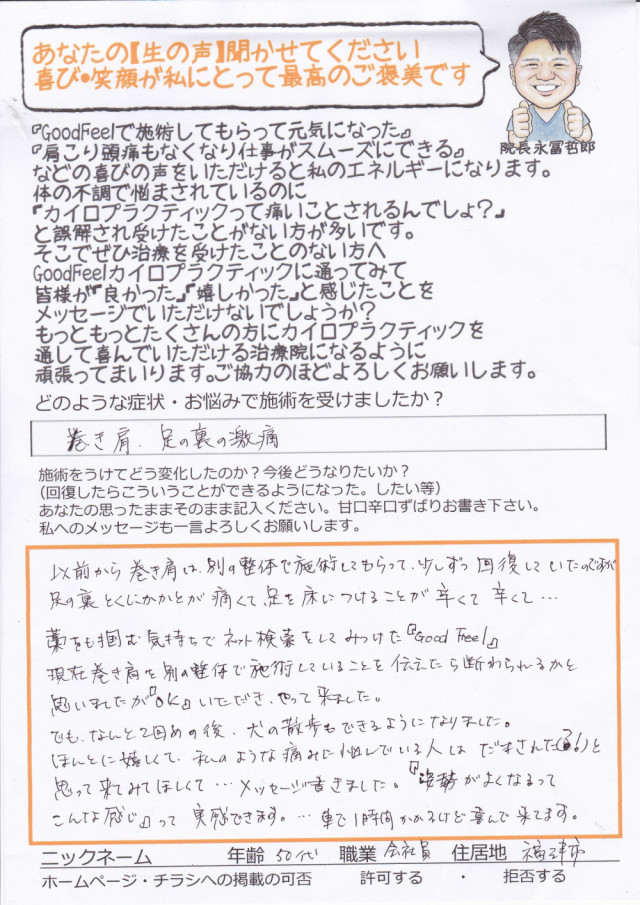 あなたの【生の声】聞かせてください
喜び・笑顔が私にとって最高のご褒美です
院長 永冨哲郎
『GoodFeelで施術してもらって元気になった』
『肩こり頭痛もなくなり仕事がスムーズにできる』
などの喜びの声をいただけると私のエネルギーになります。
体の不調で悩まされているのに
『カイロプラクティックって痛いことされるんでしょ?』
と誤解され受けたことがない方が多いです。
そこでぜひ治療を受けたことのない方へ
GoodFeelカイロプラクティックに通ってみて
皆様が『良かった』『嬉しかった』と感じたことを
メッセージでいただけないでしょうか?
もっともっとたくさんの方にカイロプラクティックを
通して喜んでいただける治療院になるように
頑張ってまいります。ご協力のほどよろしくお願いします。
どのような症状・お悩みで施術を受けましたか?
巻き肩、足の裏の激痛
施術をうけてどう変化したのか?今後どうなりたいか?
(回復したらこういうことができるようになった。したい等)
あなたの思ったままそのまま記入ください。甘口辛口ずばりお書き下さい。
私へのメッセージも一言よろしくお願いします。
以前から巻き肩は、別の整体で施術してもらって、少しずつ回復していたのですが
足の裏とくにかかとが痛くて、足を床につけることが辛くて辛くて…
藁をも掴む気持ちでネット検索をしてみつけた『Good Feel』
現在巻き肩を別の整体で施術していることを伝えたら断わられるかと
思いましたが『OK』いただき、やって来ました。
でも、なんと2回めの後、犬の散歩もできるようになりました。
ほんとに嬉しくて、私のような痛みに悩んでいる人はだまされた(?!)と
思って来てみてほしくて…メッセージ書きました。『姿勢がよくなるって
こんな感じ』って実感できます。…車で1時間かかるけど喜んで来てます。
ニックネーム 年齢 50代 職業 会社員 住居地 福津市
ホームページ・チラシへの掲載の可否 許可する ・ 拒否する